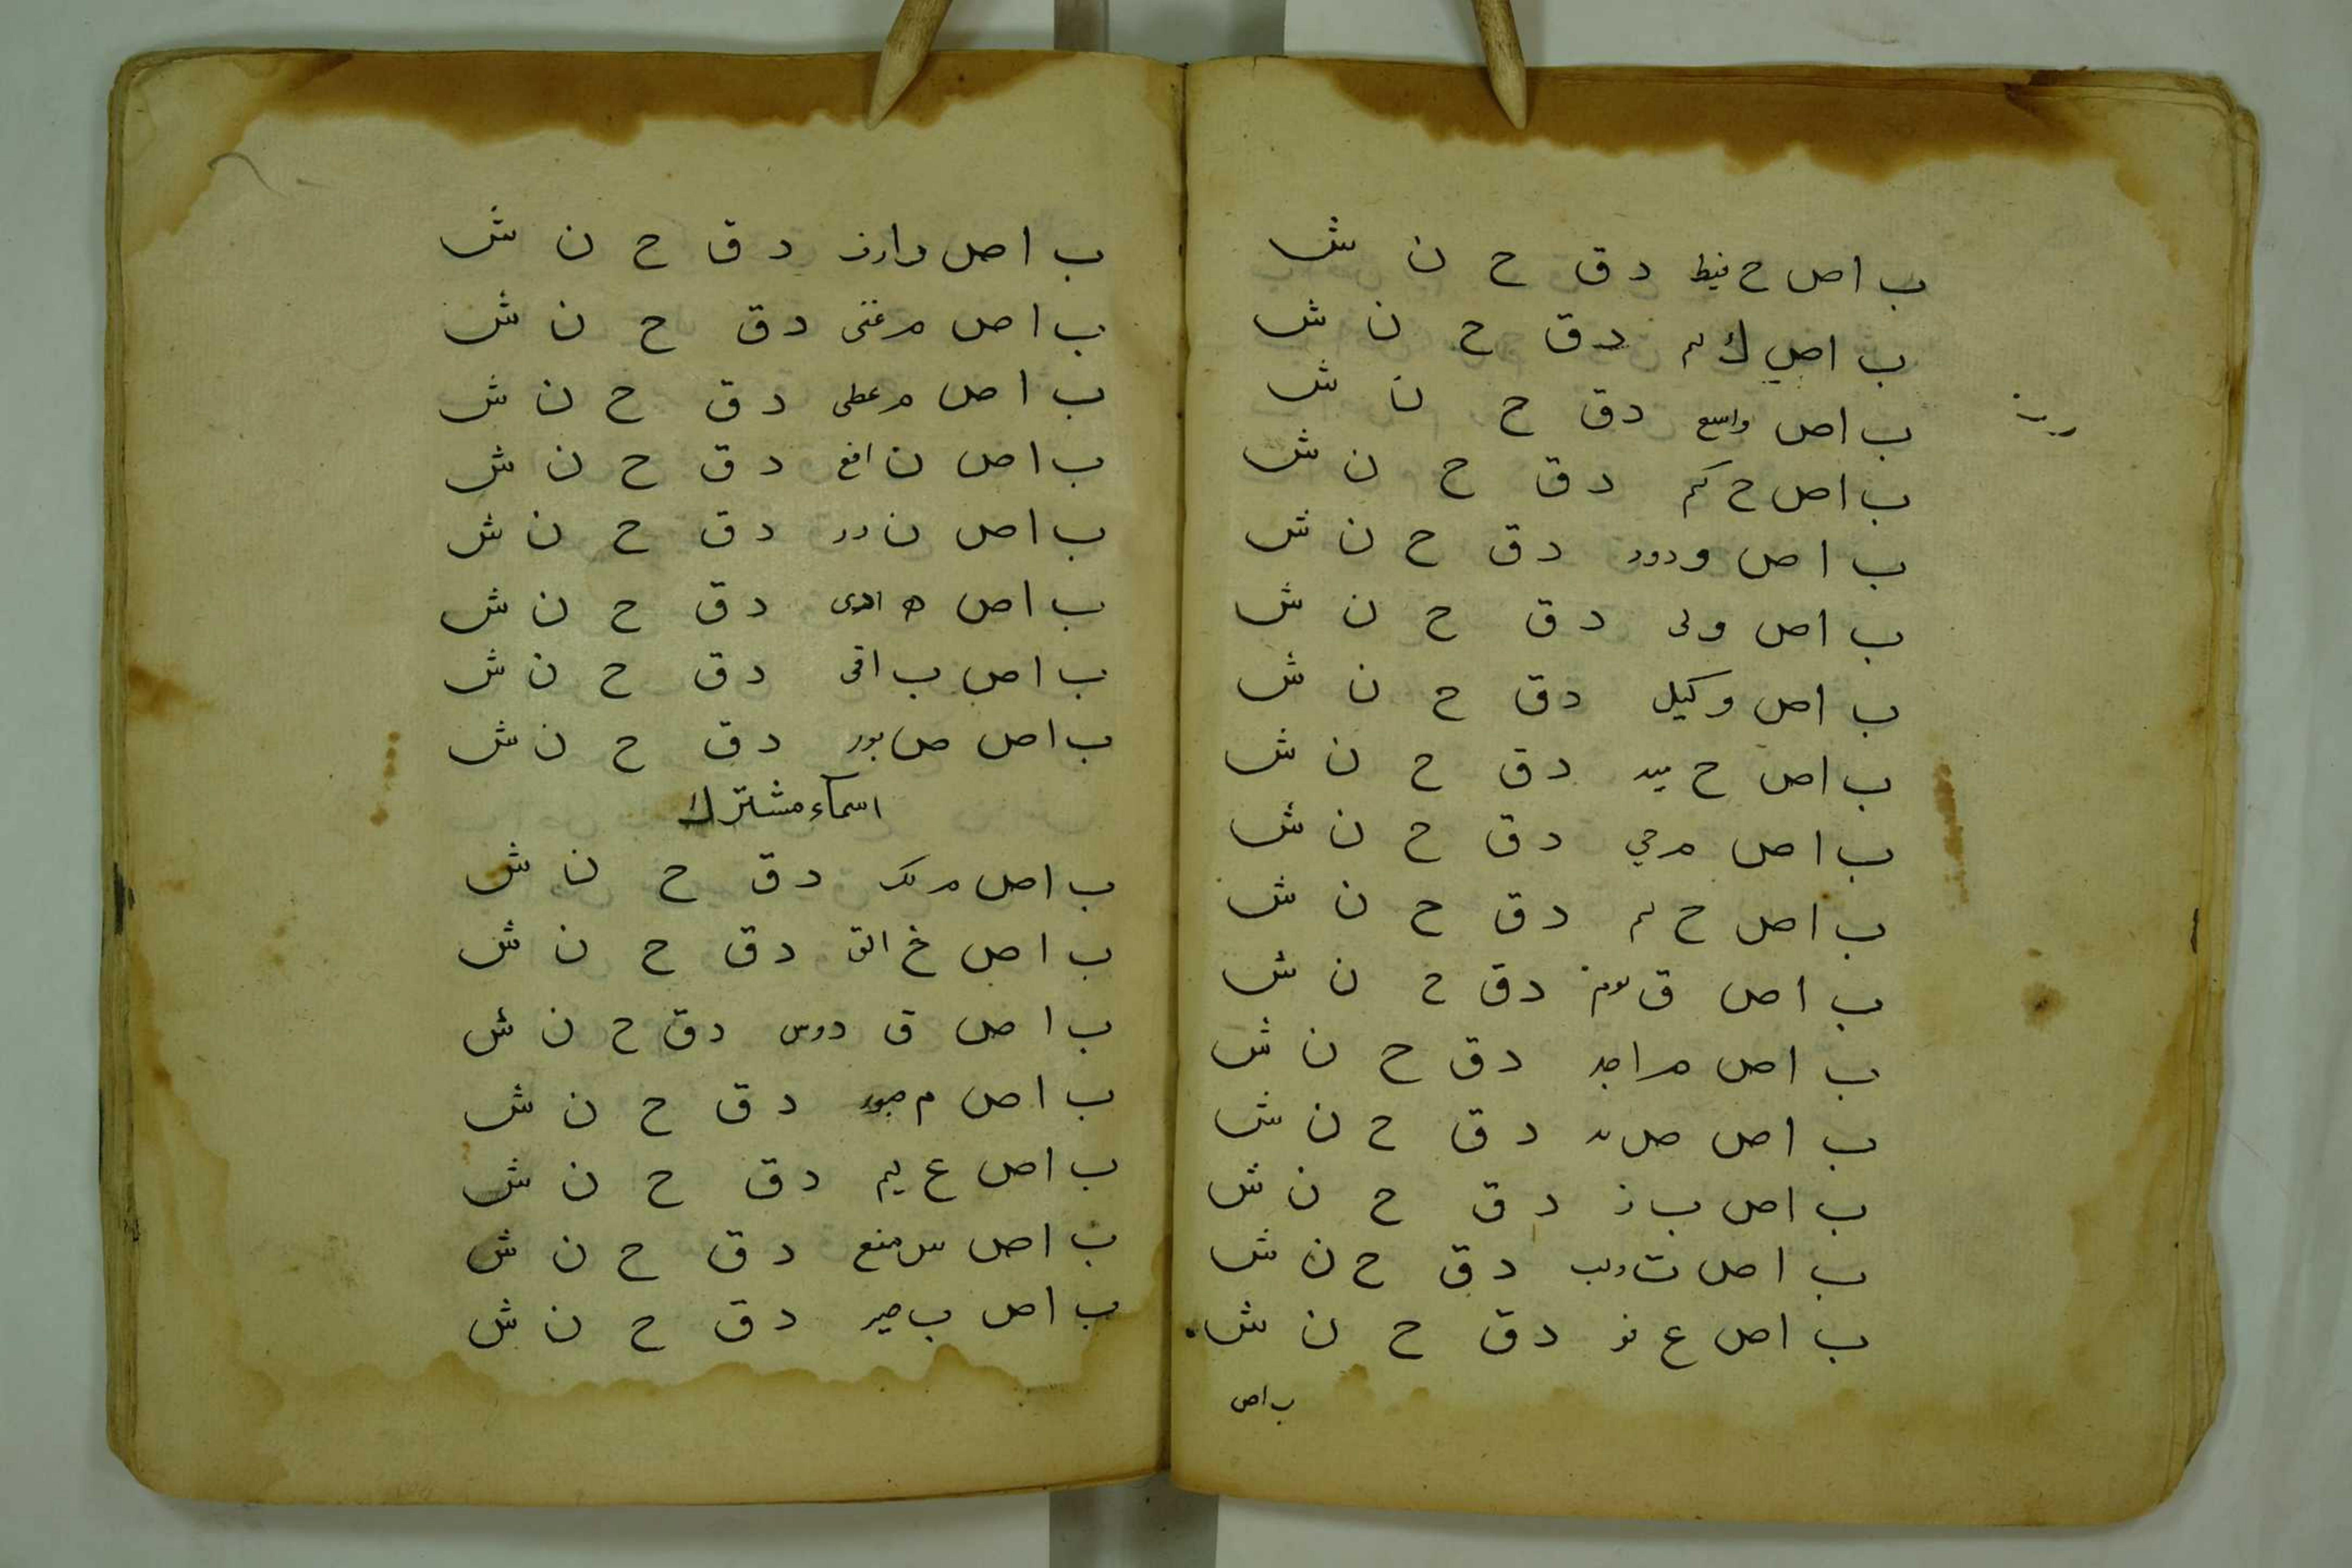 ب اص ح فيظ د ق ح ن ش
ب اص ك يم د ق ح ن ش
ب اص واسع د ق ح ن ش
ب اص ح كيم د ق ح ن ش
ب اص و دود د ق ح ن ش
ب اص ولى د ق ح ن ش
ب اص وكيل د ق ح ن ش
ب اص ح ميد د ق ح ن ش
ب اص م حي د ق ح ن ش
ب اص ح د ق ح ن ش
ب اص ق يوم د ق ح ن ش
ب اص م اجد د ق ح ن ش
ب اص ص مد د ق ح ن ش
ب اص ب ر د ق ح ن ش
ب اص ت د ق ح ن ش
ب اص ع فو د ق ح ن ش
ب اص
ب اص وارث د ق ح ن ش
ب اص م غنى د ق ح ن ش
ب اص م عطى د ق ح ن ش
ب اص ن افع د ق ح ن ش
ب اص ن ور د ق ح ن ش
ب اص ه ادى د ق ح ن ش
ب اص ب اقى د ق ح ن ش
ب اص ص بور د ق ح ن ش
اسماء مشترك
ب اص م لك د ق ح ن ش
ب اص خ الق د ق ح ن ش
ب اص ق دوس د ق ح ن ش
ب اص م صور د ق ح ن ش
ب اص ع ليم د ق ح ن ش
ب اص س ميع د ق ح ن ش
ب اص ب صير د ق ح ن ش